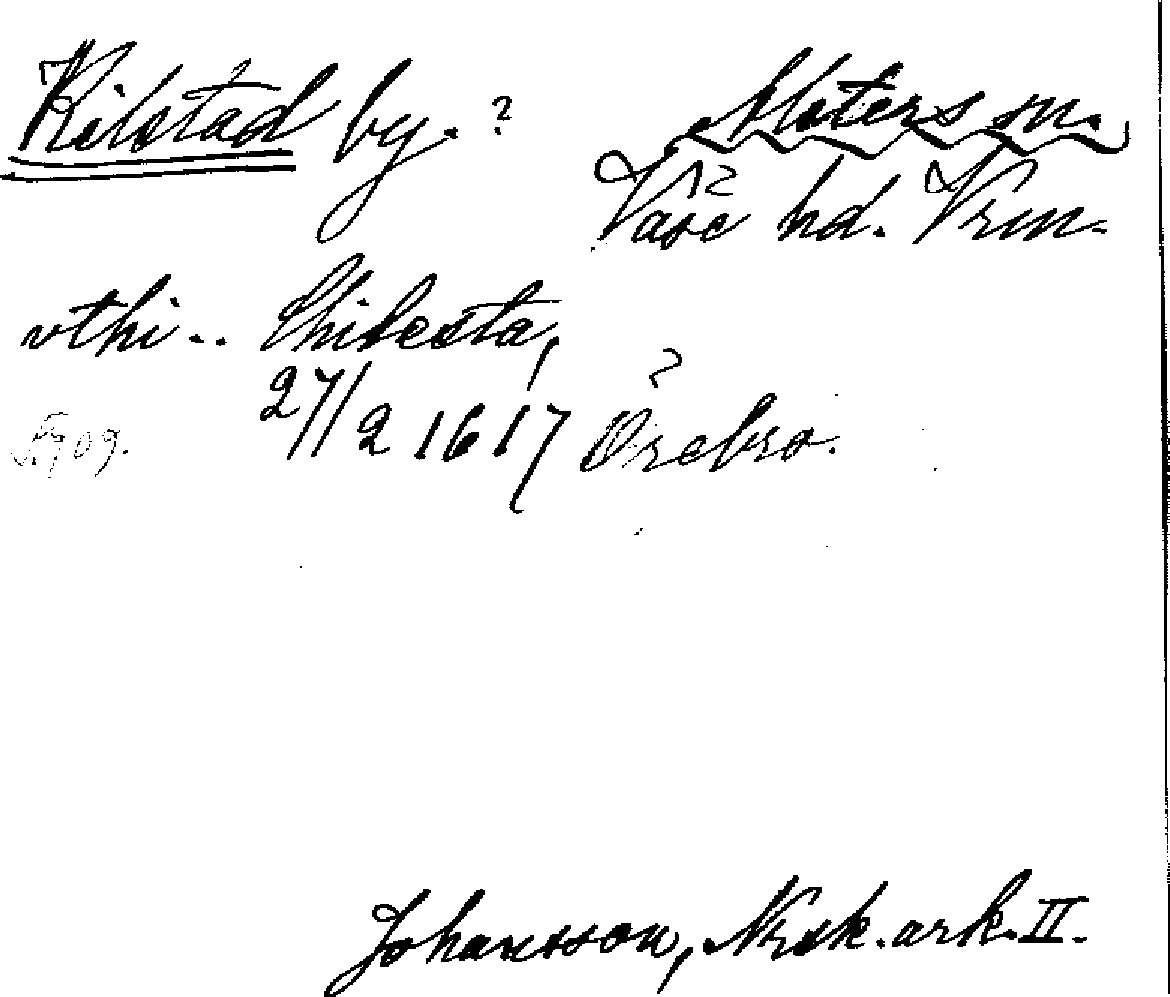 Kilstad by. ? Alsters sn.
Väse hd. Vrm.
vthi .. Chilesta,
27/2 1617 Örebro.
Johansson, Nrsk. ark. II.